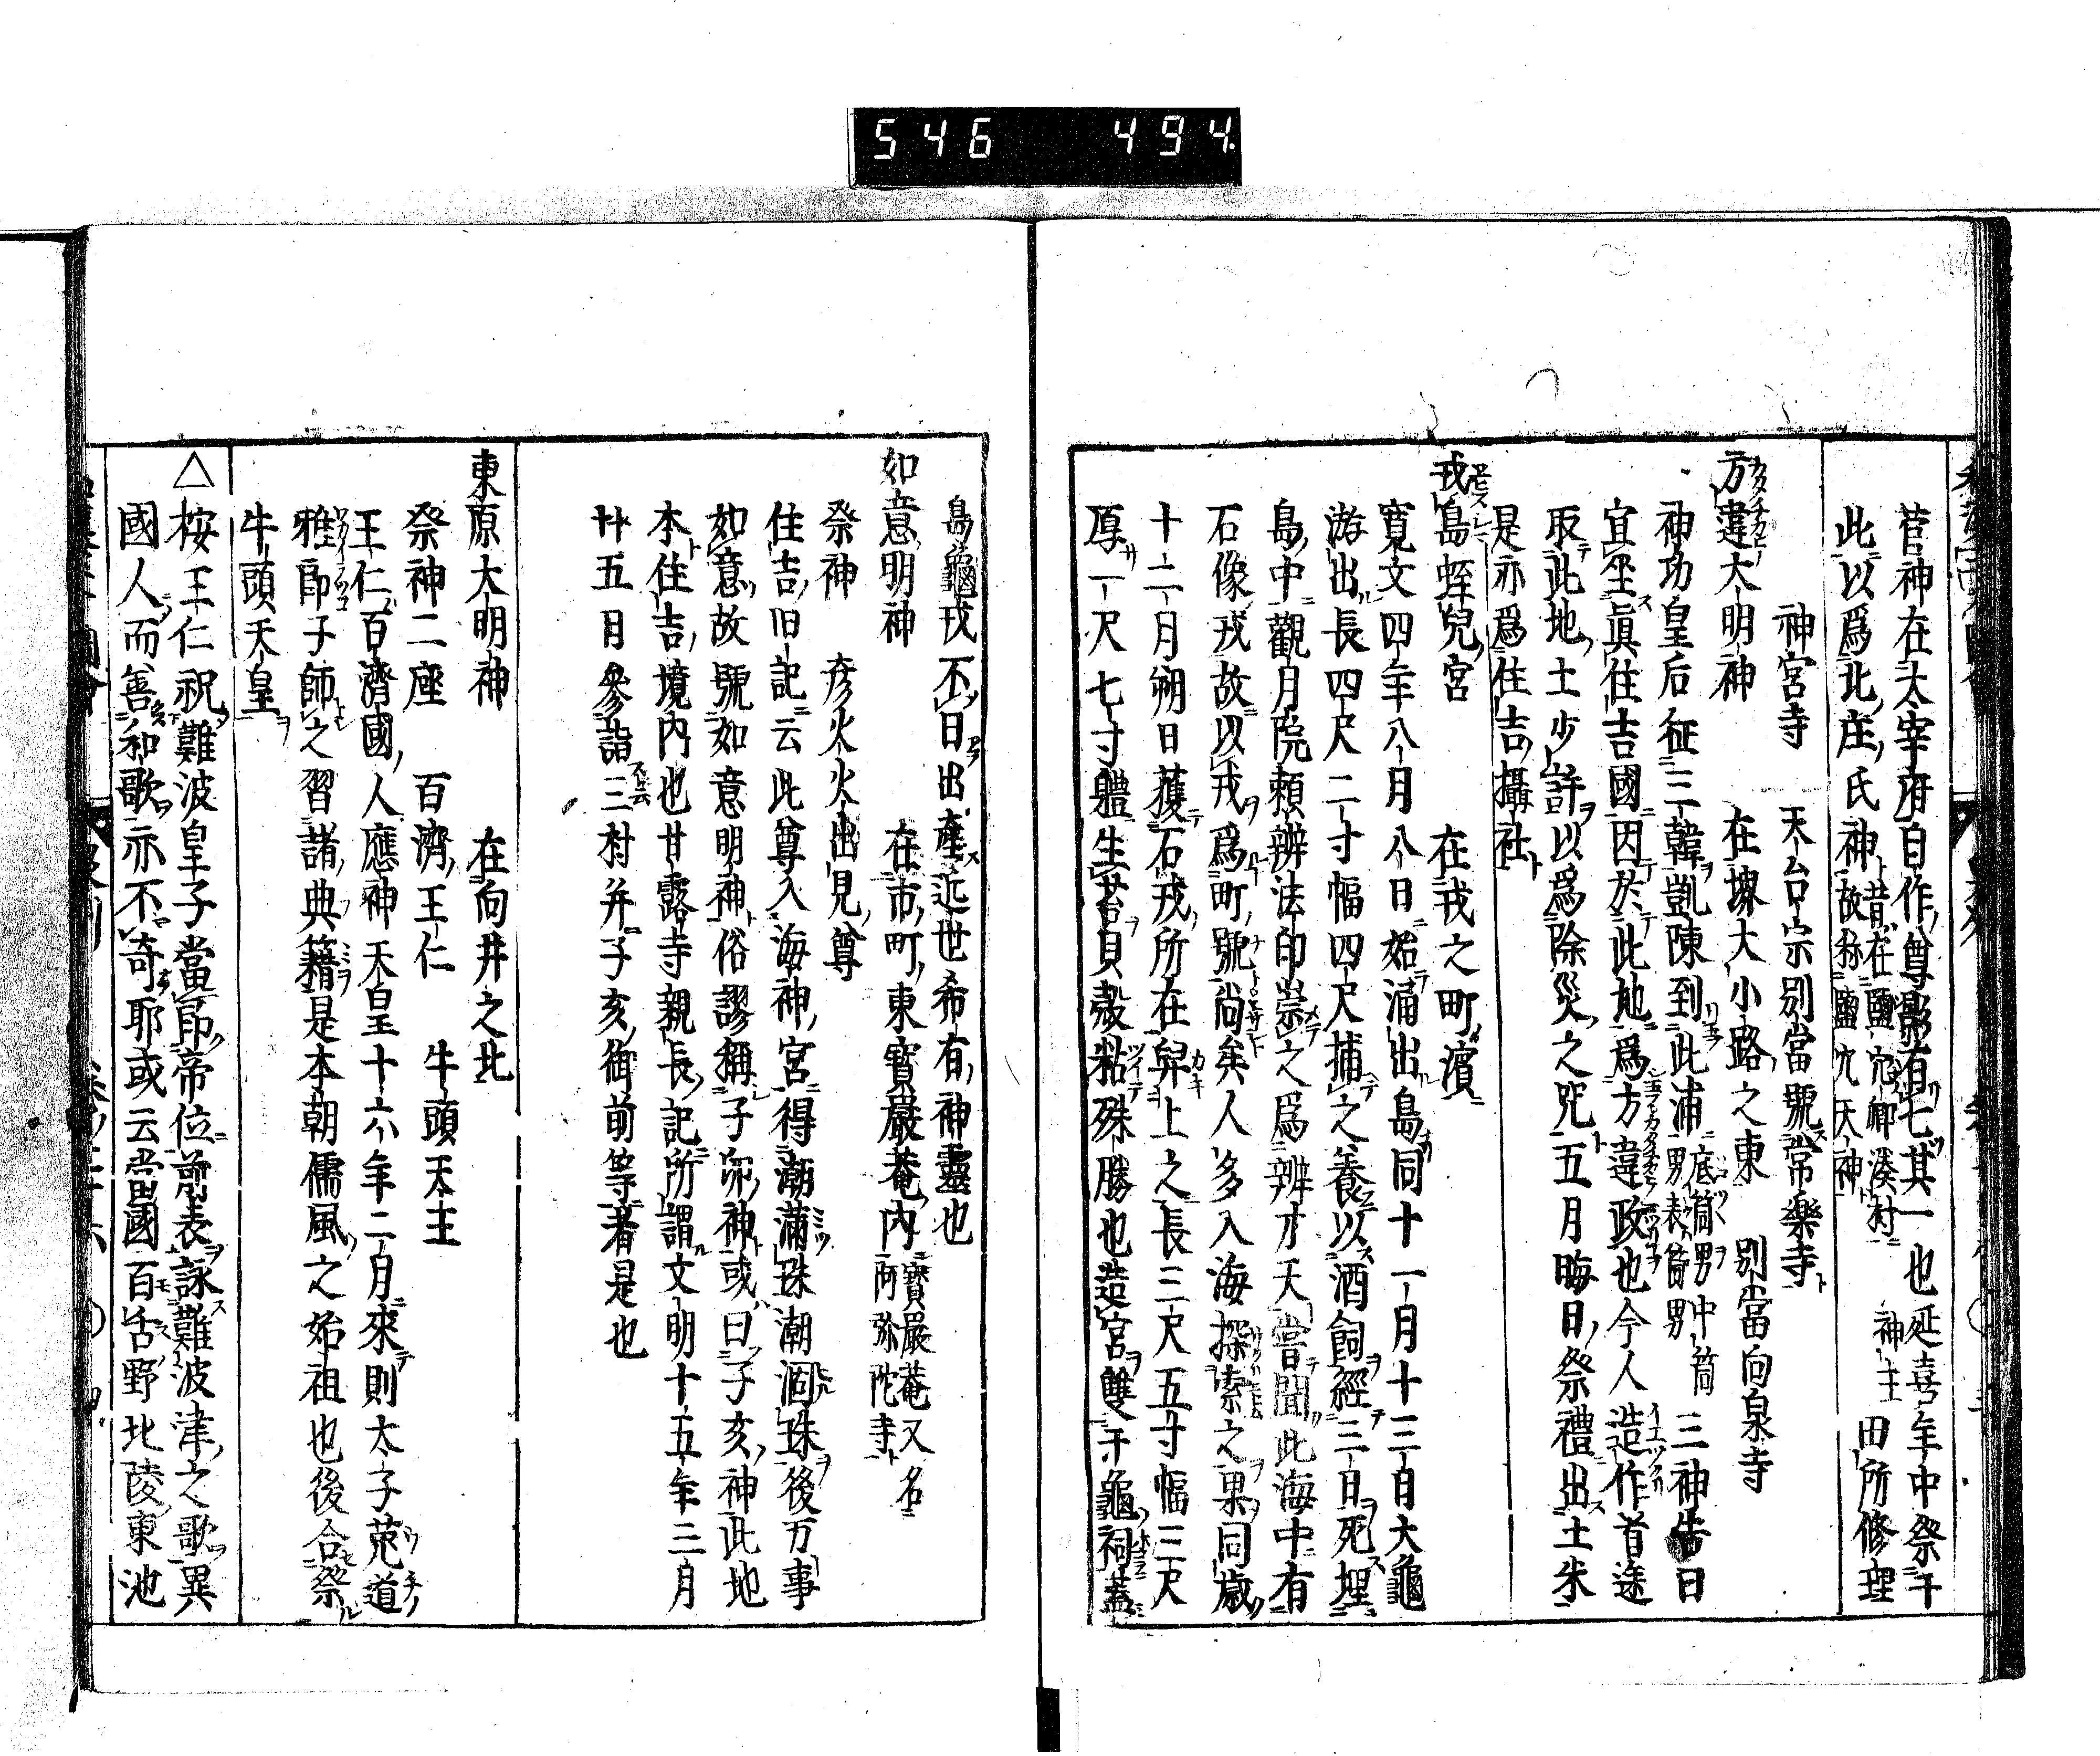 546 494
菅神在太宰府自作尊影有七其一也延喜年中祭于
此以爲北庄氏神昔在鹽穴郷湊村故称鹽穴天神 神主田所修理
神宮寺 天台宗別當號常樂寺
方違大明神 在堺大小路之東 別當向泉寺
神功皇后征三韓凱陳到此浦底筒男中筒男表筒男三神告曰
宜坐眞住吉國因於此地爲方違政也今人造作首途
取此地土少許以爲除災之咒五月晦日祭禮出土朱
是亦爲住吉攝社
戎島蛭兒宮 在戎之町濱
寛文四年八月八日始涌出島同十一月十三日大龜
游出長四尺二寸幅四尺捕之養以酒飼經三日死埋
島中觀月院頼辨法印崇之爲辨才天嘗聞此海中有
石像戎故以戎爲町號尚矣人多入海探索之果同歳
十二月朔日獲石戎所在舁上之長三尺五寸幅三尺
厚一尺七寸軆生苔貝殻粘殊勝也造宮雙于龜祠蓋
島龜戎不日出產近世希有神靈也
如意明神 在市町東寳嚴菴内寳嚴菴又名阿弥陀寺
祭神 彦火火出見尊
住吉旧記云此尊入海神宮得潮滿珠潮涸珠後万事
如意故號如意明神俗謬稱子卯神或曰子亥神此地
本住吉境内也甘露寺親長記所謂文明十五年三月
廿五日參詣三村并子亥御前等者是也
東原大明神 在向井之北
祭神二座 百濟王仁 牛頭天王
王仁百濟國人應神天皇十六年二月來則太子菟道
雅郎子師之習諸典籍是本朝儒風之始祖也後合祭
牛頭天皇
△桉王仁祝難波皇子當卽帝位前表詠難波津之歌異
國人而善和歌亦不奇耶或云當國百舌野北陵東池